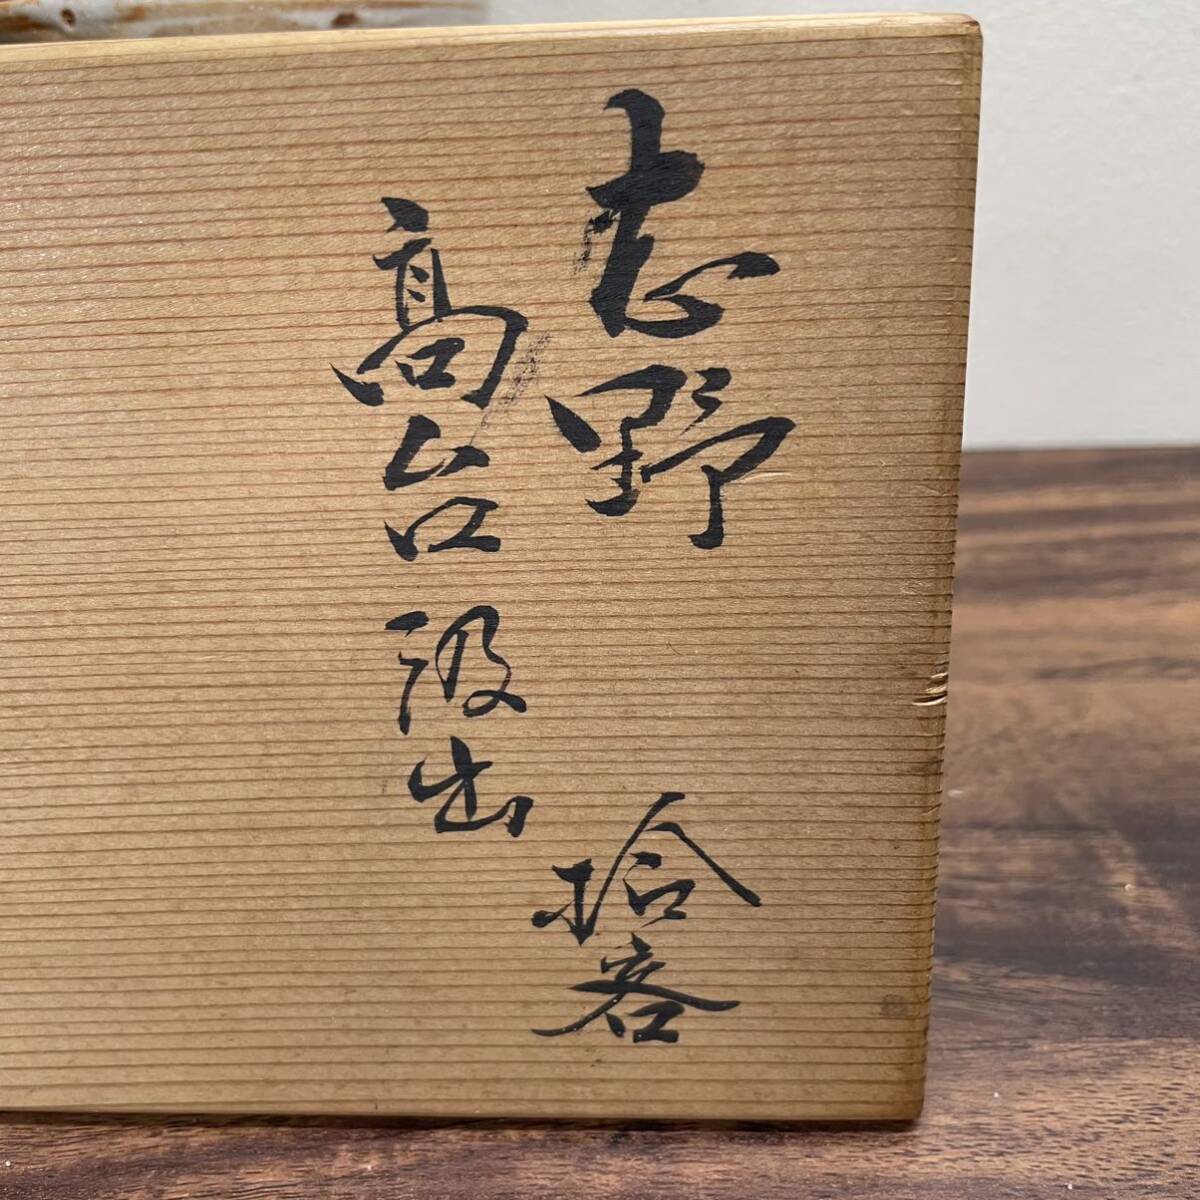 志野 拾客
高台汲出